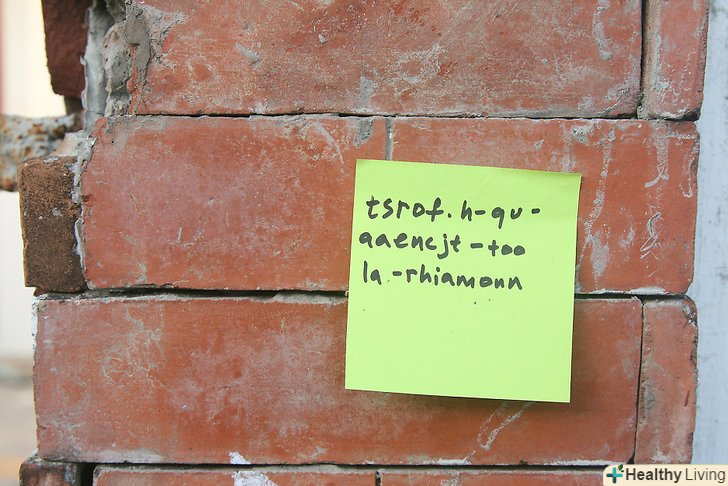 tsrof.h-qu-
aaencjt-too
la-rhiamounn
Healthy Living